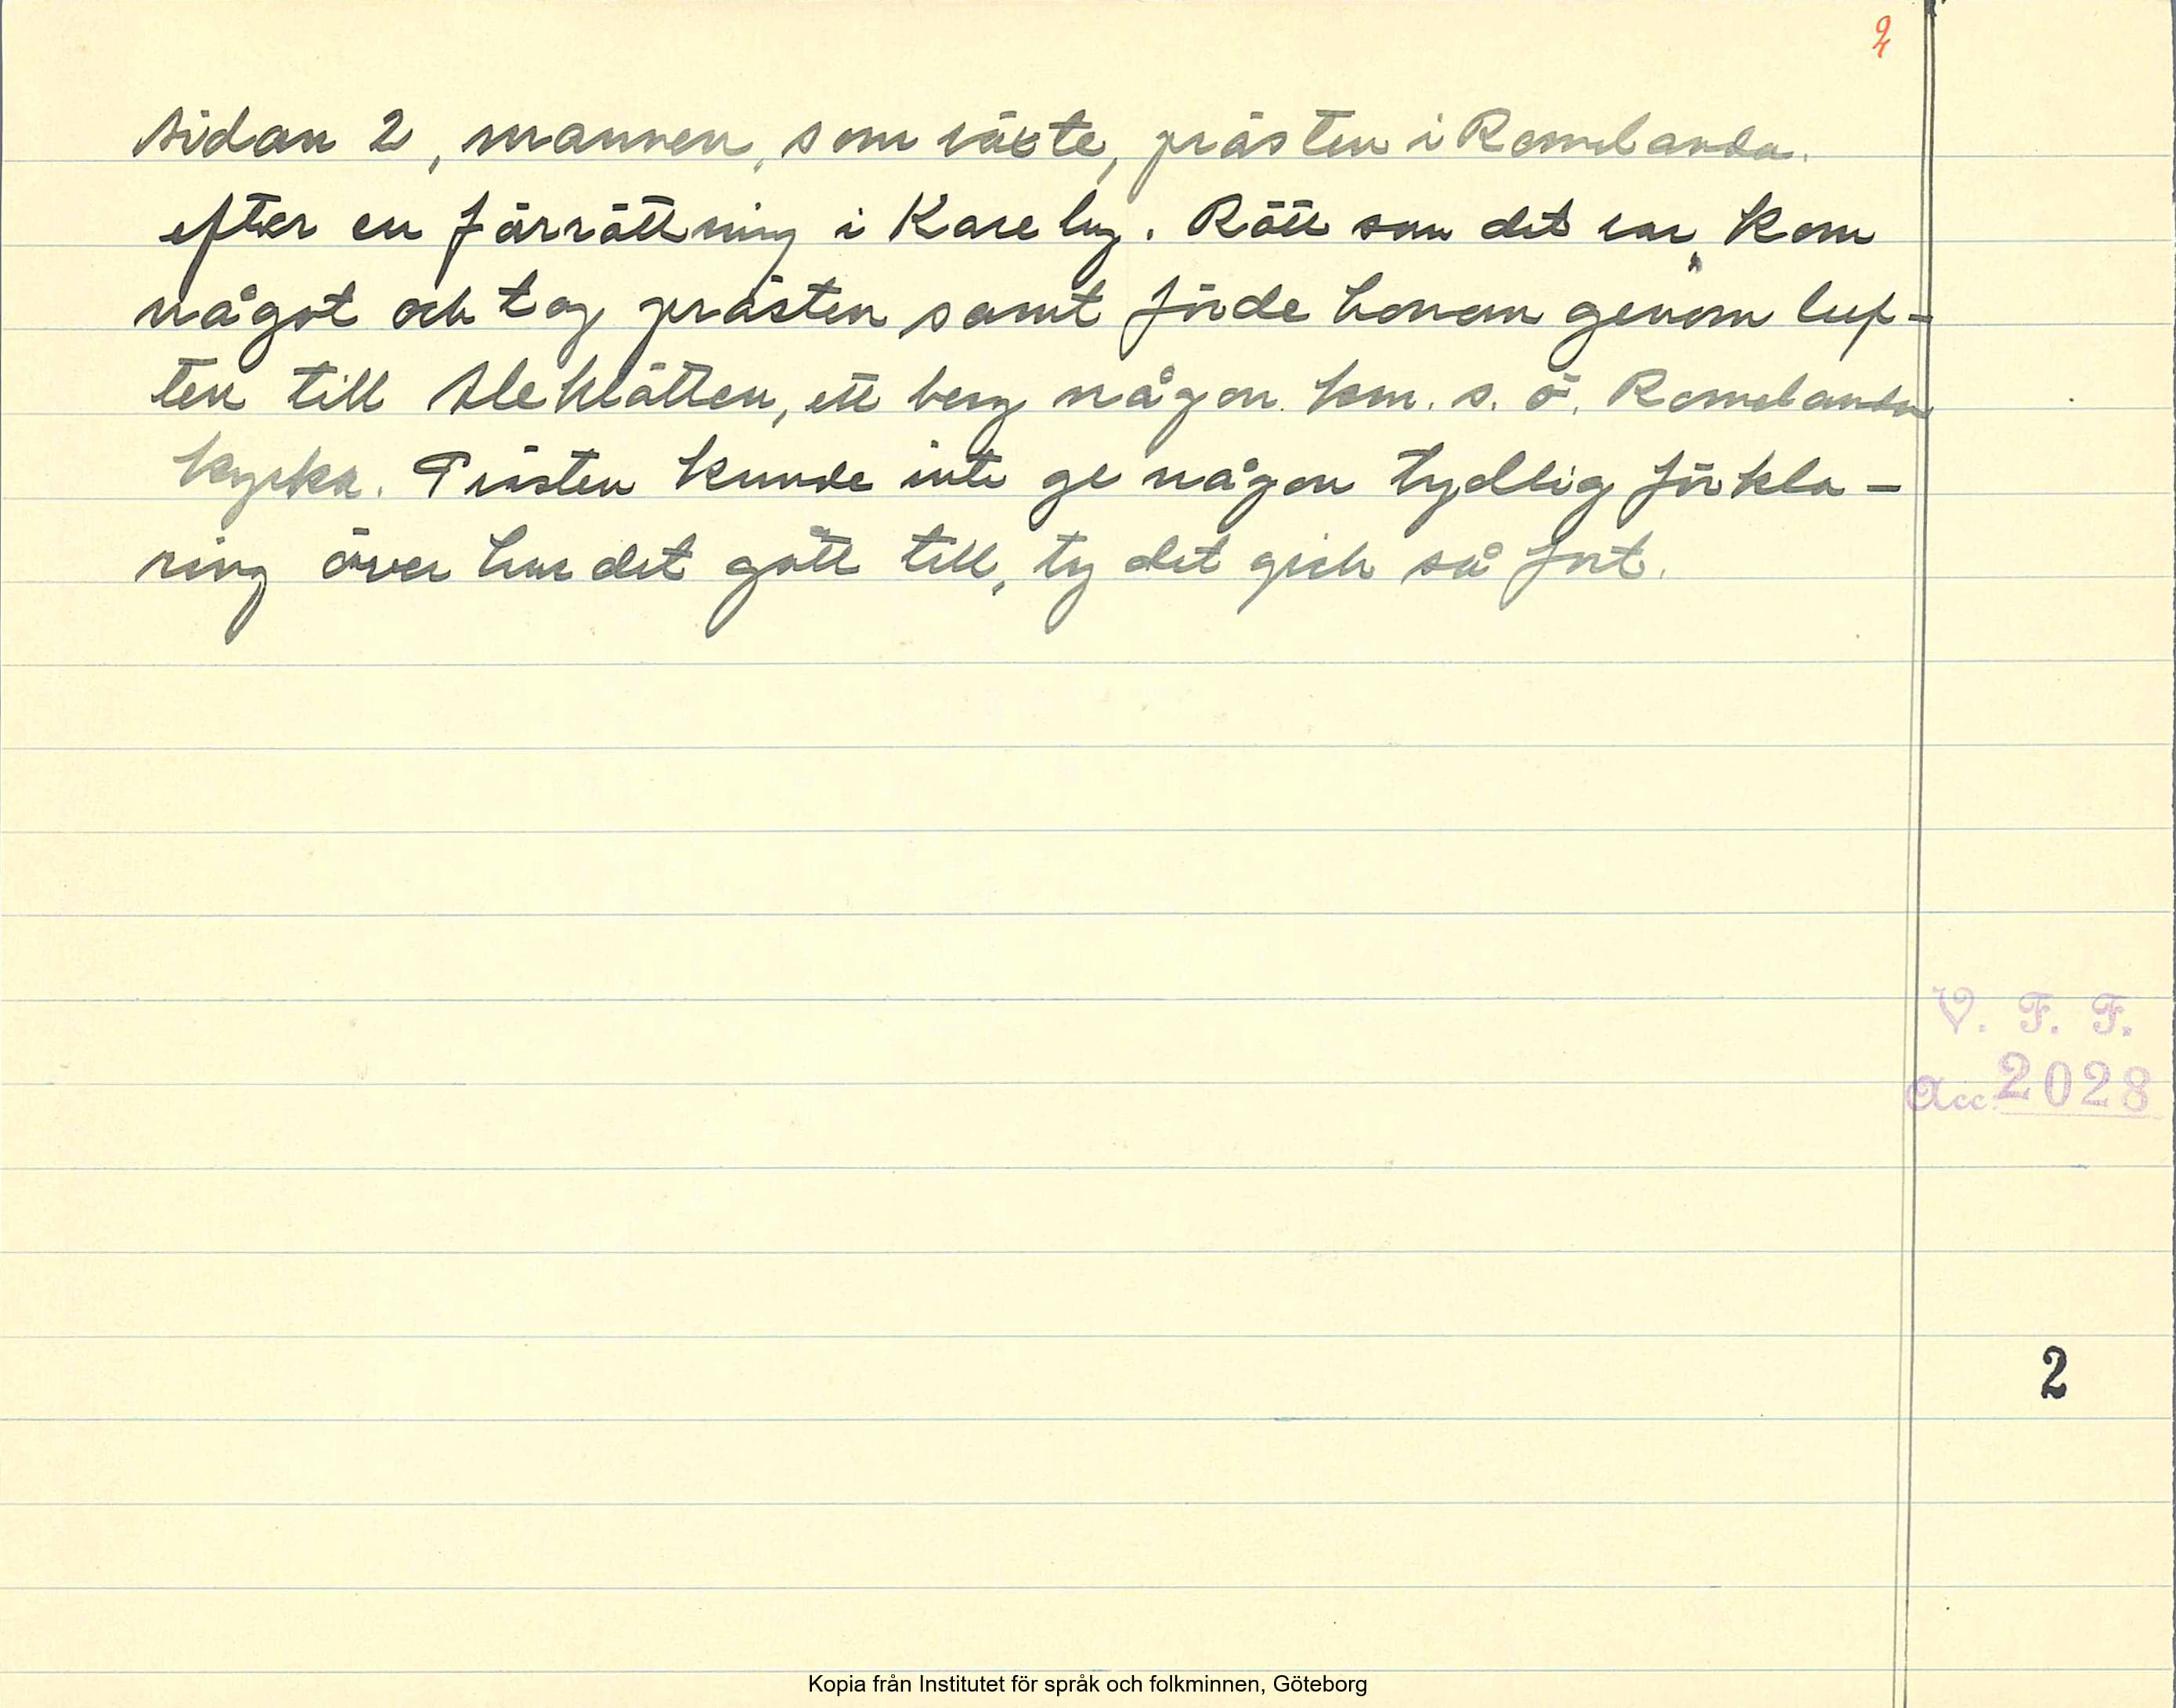 2
sidan 2, mannen, som växte, prästen i Romelanda.
efter en förrättning i Kareby. Rätt som det var, kom
något och tog prästen samt förde honom genom luf-
ten till Aleklätten, ett berg någon km. s. ö. Romelanda
kyrka. Prästen kunde inte ge någon tydlig förkla-
ring över hur det gått till, ty det gick så fort.
V. F. F.
Acc. 2028
2
Kopia från Institutet för språk och folkminnen, Göteborg